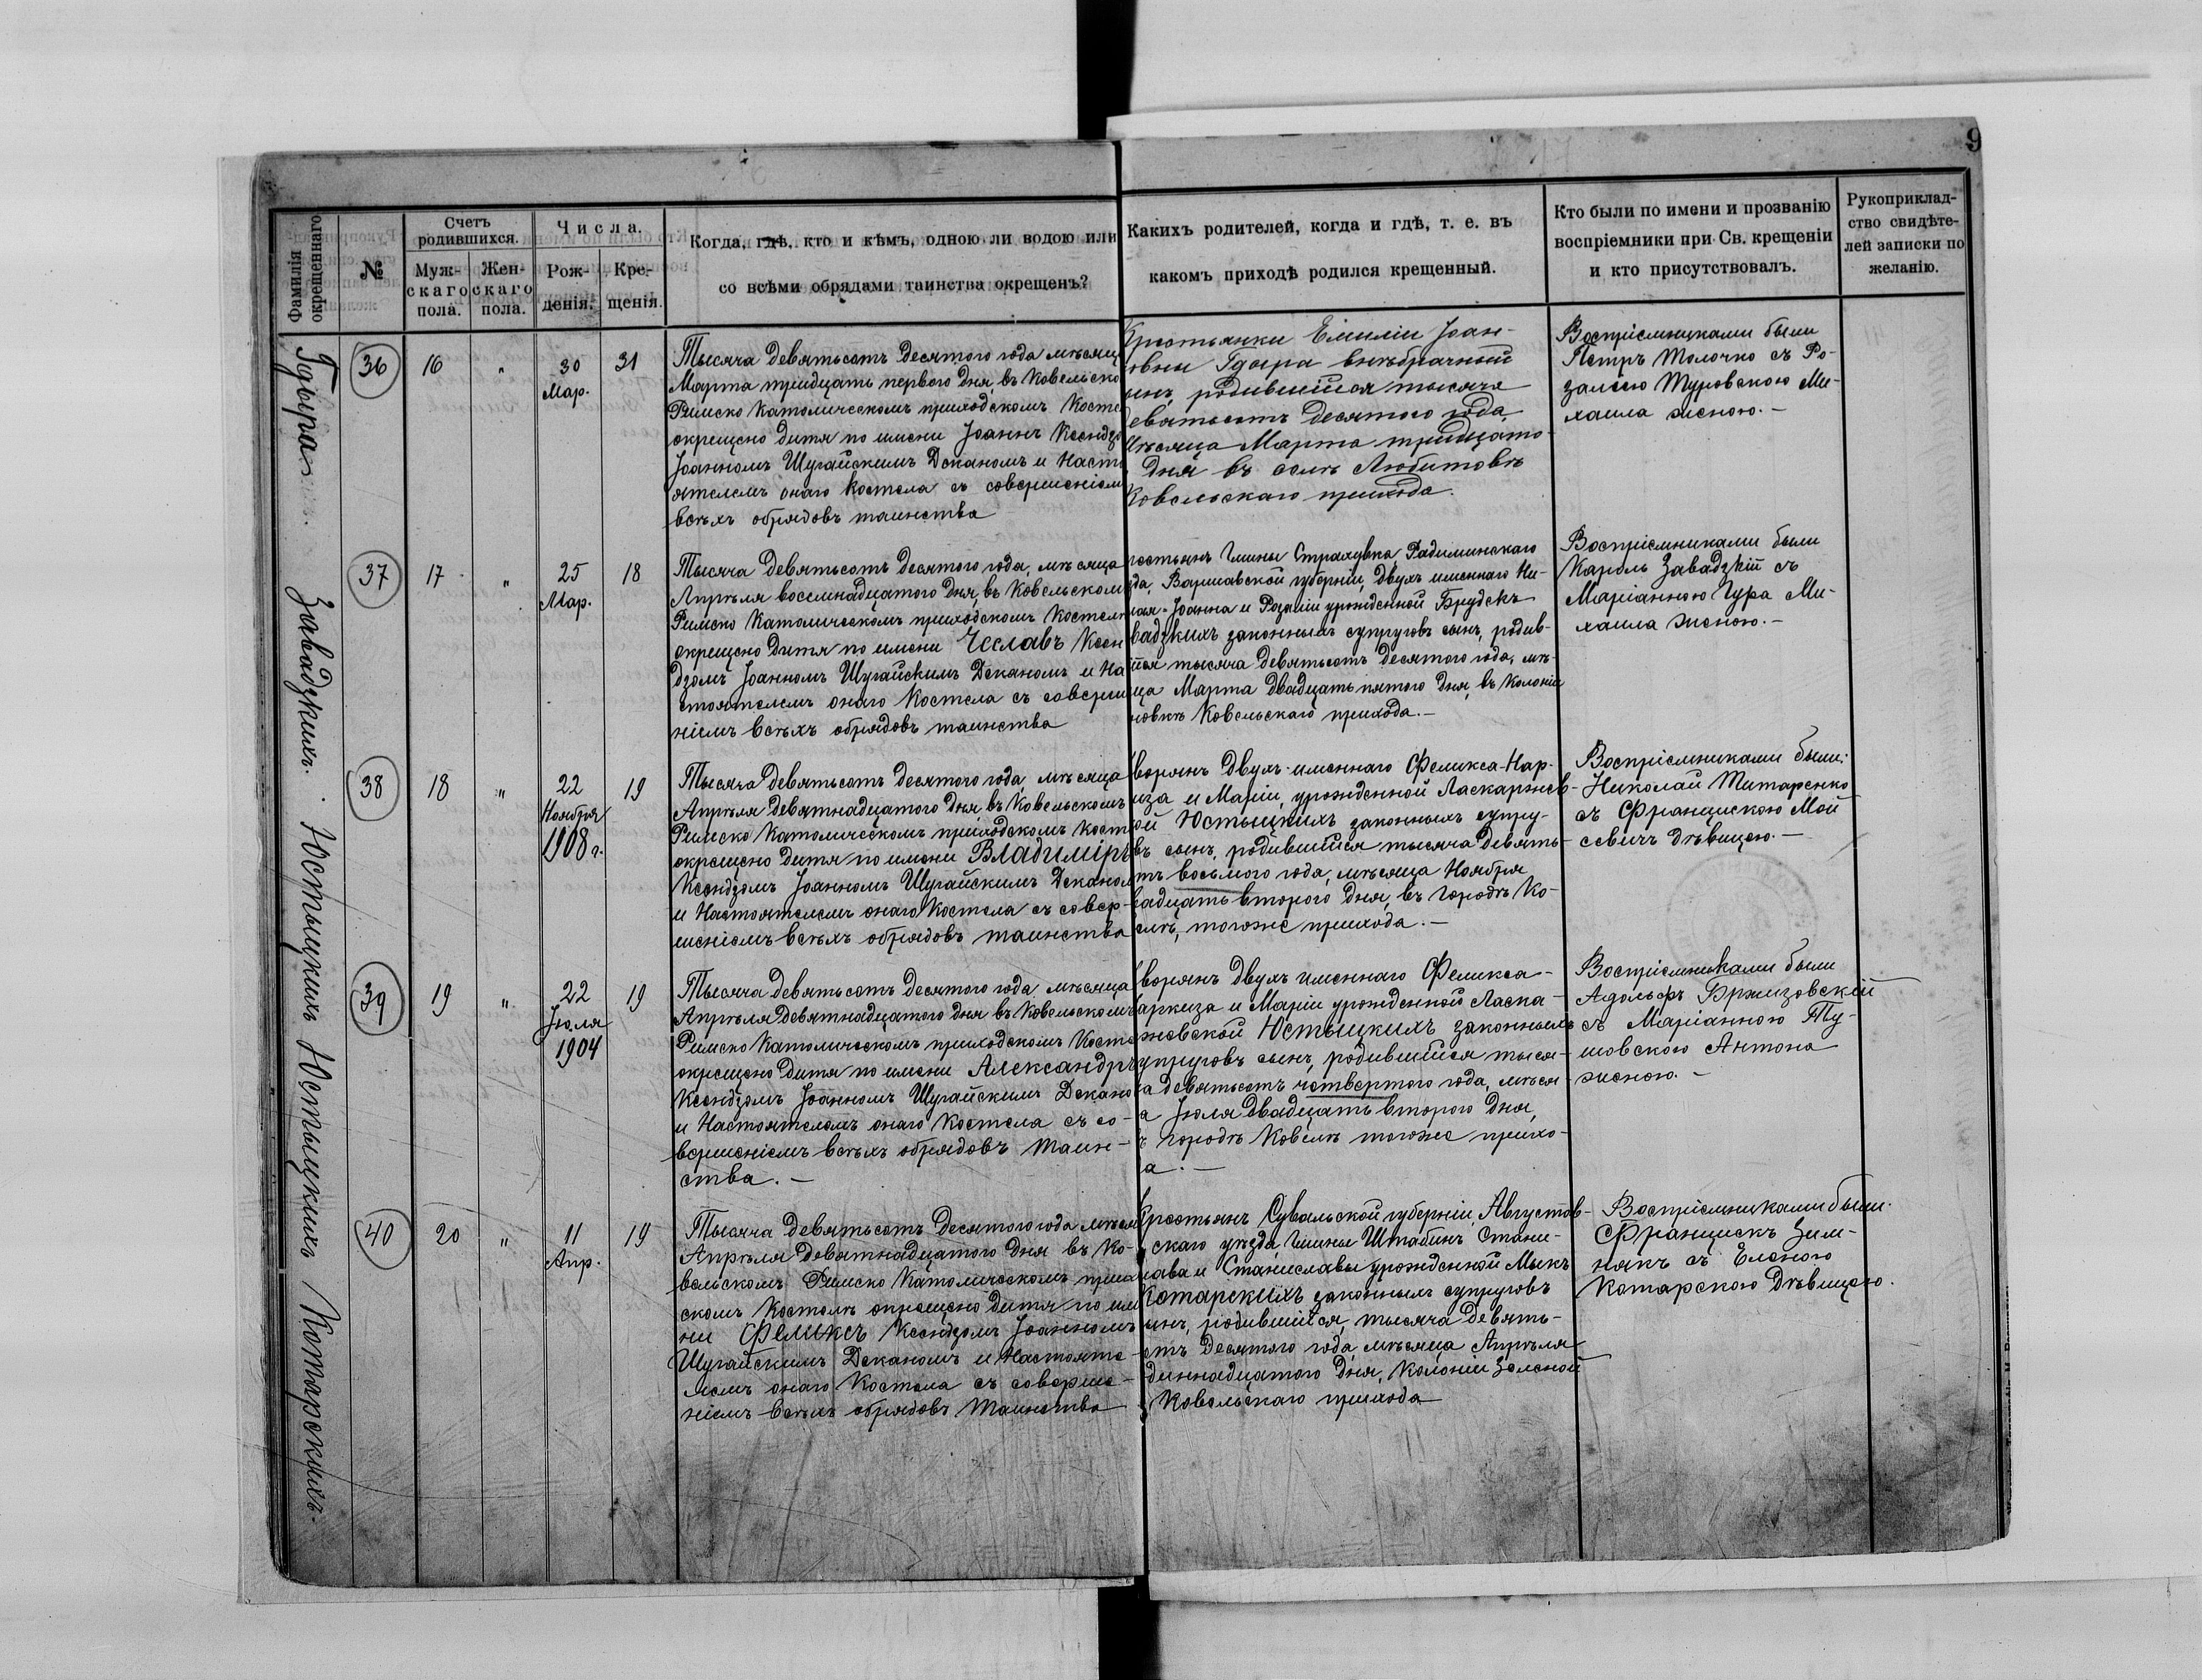 9
Фамилія окрещеннаго
№
Счетъ родившихся.
Мужскаго пола.
Женскаго пола.
Числа.
Рожденія.
Крещенія.
Когда, гдѣ, кто и кѣмъ, одною ли водою или
со всѣми обрядами таинства окрещенъ?
Какихъ родителей, когда и гдѣ, т. е. въ
какомъ приходѣ родился крещенный.
Кто были по имени и прозванію
воспріемники при Св. крещеніи
и кто присутствовалъ.
Рукоприклад-
ство свидѣте-
лей записки по
желанію.
Гдыра
36
16
"
30
Мар.
31
Тысяча девятьсотъ десятого года мѣсяц
Марта тридцать первого дня въ Ковельско
Римско Католическомъ приходскомъ Косте
окрещено дитя по имени Іоаннъ Ксендзо
Іоанномъ Шугайскимъ Деканомъ и Насто
ятелемъ онаго Костела съ совершеніем
всѣхъ обрядовъ таинства
Крестьянки Емиліи Іоан-
овны Гдыра внѣбрачный
ынъ, родившійся тысяча
евятьсотъ десятого года,
мѣсяца Марта тридцато-
дня въ селѣ Любитовѣ
Ковельскаго прихода.
Воспріемниками были
Петръ Толочко съ Ро-
заліею Туровскою Ми-
хаила женою.-
Завадзкихъ.
37
17
"
25
Мар.
18
Тысяча девятьсотъ десятого года, мѣсяца
Апрѣля восемнадцатого дня, въ Ковельском
Римско Католическомъ приходскомъ Костел
окрещено дитя по имени Чеславъ Ксен
дзомъ Іоанномъ Шугайскимъ Деканомъ и На
стоятелемъ онаго Костела съ соверше
ніемъ всѣхъ обрядовъ таинства
рестьянъ Гмины Страхувка Радиминскаго
зда, Варшавской губерніи, двухъ именнаго Ни-
лая-Іоанна и Розаліи урожденной Брудекъ
вадзкихъ законныхъ супруговъ сынъ, родив-
ійся тысяча девятьсотъ десятого года, мѣ-
ца Марта двадцать пятого дня, въ Колоніи
новкѣ Ковельскаго прихода.-
Воспріемниками были
Кароль Завадзкій съ
Маріанною Гура Ми-
хаила женою.-
Юстыцкихъ
38
18
"
22
Ноября
1908 г.
19
Тысяча девятьсотъ десятого года, мѣсяца
Апрѣля девятнадцатого дня, въ Ковельскомъ
Римско Католическомъ приходскомъ Кост
окрещено дитя по имени Владиміръ
Ксендзомъ Іоанномъ Шугайскимъ Деканом
и Настоятелемъ онаго Костела съ совер-
шеніемъ всѣхъ обрядовъ таинства
ворянъ двухъ-именнаго Феликса-Нар-
иза и Маріи, урожденной Ласкаржев-
ой Юстыцкихъ законныхъ супру-
въ сынъ, родившійся тысяча девять-
тъ восьмого года, мѣсяца Ноября
адцать второго дня, въ городѣ Ко-
елѣ, тогоже прихода.-
Воспріемниками были:
Николай Титаренко
съ Францискою Мой
севичъ дѣвицею.-
Юстыцкихъ
39
19
"
22
Іюля
1904
19
Тысяча девятьсотъ десятого года мѣсяца
Апрѣля девятнадцатого дня въ Ковельскомъ
Римско Католическомъ приходскомъ Косте
окрещено дитя по имени Александръ
Ксендзомъ Іоанномъ Шугайскимъ Декано
и Настоятелемъ онаго Костела съ со-
вершеніемъ всѣхъ обрядовъ таин-
ства.-
ворянъ двухъ именнаго Феликса-
аркиза и Маріи урожденной Ласка-
жевской Юстыцкихъ законныхъ
упруговъ сынъ, родившійся тыся-
а девятьсотъ четвертого года, мѣся-
а Іюля двадцать второго дня,
ъ городѣ Ковелѣ тогоже прихо-
а.-
Воспріемниками были
Адольфъ Бржизовскій
съ Маріанною Ту-
шовскою Антона
женою.-
Котарскихъ.
40
20
"
11
Апр.
19
Тысяча девятьсотъ десятого года мѣсяц
Апрѣля девятнадцатого дня въ Ко-
вельскомъ Римско Католическомъ прихо
скомъ Костелѣ окрещено дитя по им
ни Феликсъ Ксендзомъ Іоанномъ
Шугайскимъ Деканомъ и Настояте-
лемъ онаго Костела съ соверше-
ніемъ всѣхъ обрядовъ таинства
Крестьянъ Сувальской губерніи, Августов-
скаго уѣзда, Гмины Штабинъ Стани-
лава и Станиславы урожденной Мыкъ
Котарскихъ законныхъ супруговъ
ынъ, родившійся, тысяча девять-
отъ десятого года, мѣсяца Апрѣля
диннадцатого дня, Колоніи Зеленой
Ковельскаго прихода
Воспріемниками были.
Францискъ Зим-
някъ съ Еленою
Котарскою дѣвицею.